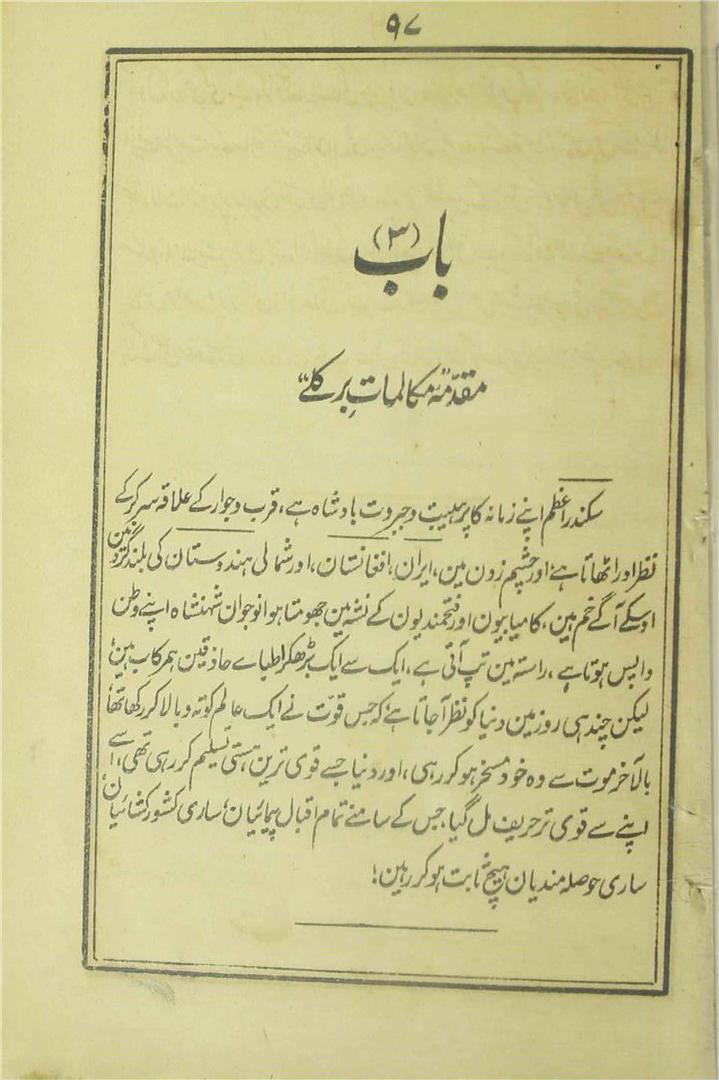 ۹۷
باب (۳)
مقدّمۂ "مکالماتِ برکلے"
سکندر اعظم اپنے زمانہ کا پر ہیبت و جبروت بادشاہ ہے، قرب و جوار کے علاقہ سر کر کے
نظر اور اٹھاتا ہے، اور چشم زدن مین، ایران، افغانستان، اور شمالی ہندوستان کی بلند گردنین
اوسکے آگے خم ہین، کامیابیون اور فتحمندیون کے نشہ مین جھومتا ہوا نوجوان شہنشاہ اپنے وطن
واپس ہوتا ہے، راستہ مین تپ آتی ہے، ایک سے ایک بڑھکر اطباے حاذقین ہمرکاب ہین،
لیکن چند ہی روز مین دنیا کو نظر آجاتا ہے کہ جس قوّت نے ایک عالم کو تہ و بالا کر رکھا تھا،
بالآخر موت سے وہ خود مسخر ہو کر رہی، اور دنیا جسے قوی ترین ہستی تسلیم کر رہی تھی، اُسے
اپنے سے قوی تر حریف مل گیا، جس کے سامنے تمام اقبال پیمائیان، ساری کشور کشائیان،
ساری حوصلہ مندیان ہیچ ثابت ہو کر رہین!